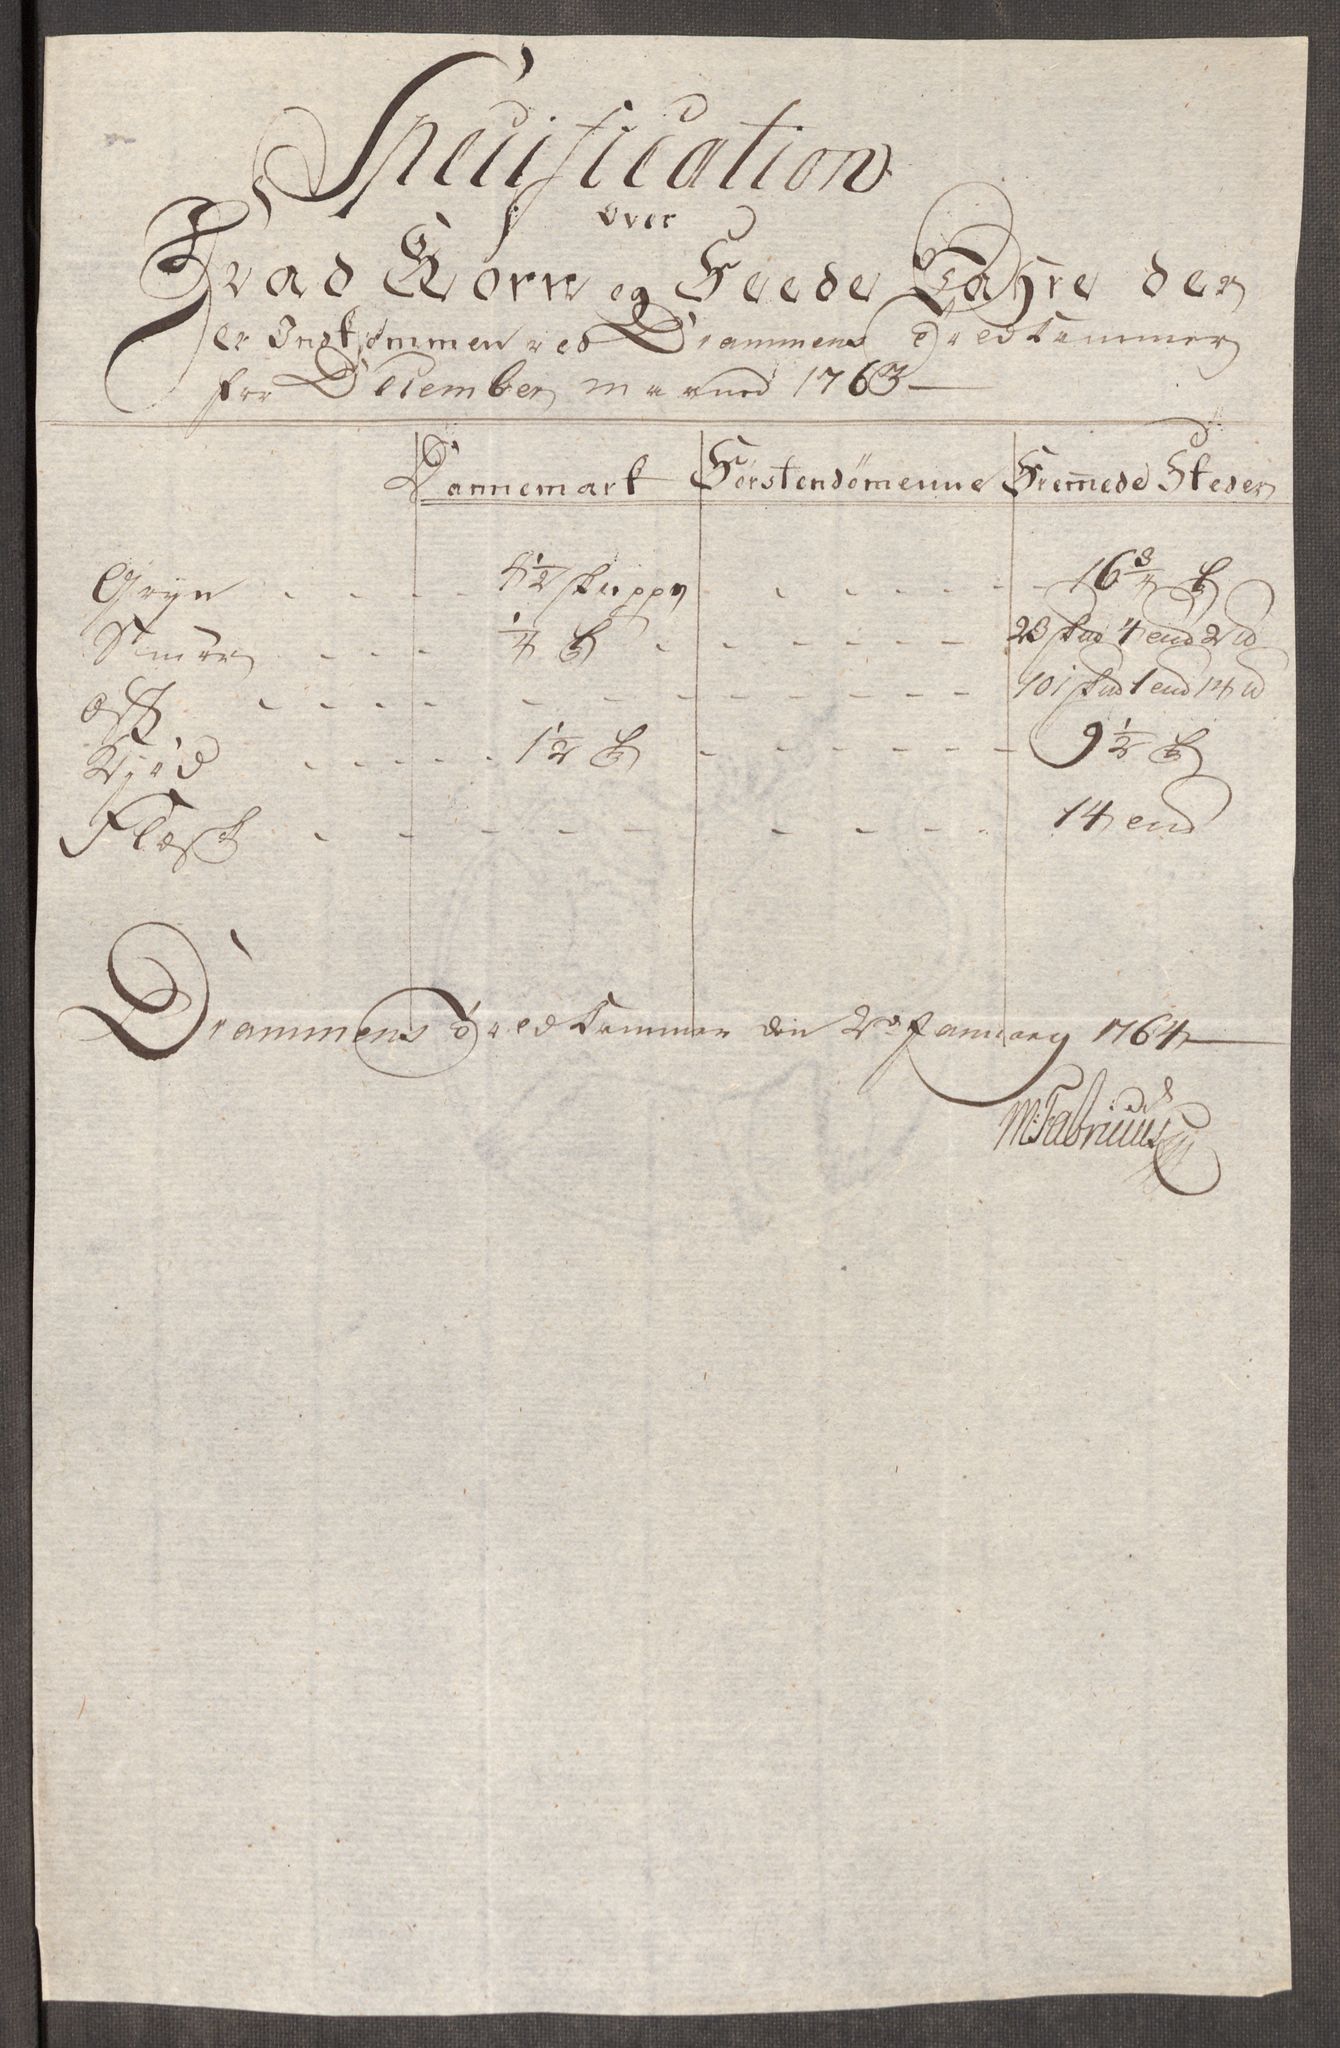 Specification
over
Hvad Korn og Feede Wahre der
er Indkommen ved Drammens Tredkammer
for December maaned 1763
Dannemark Förstendömenne Fremede Steder
Gryn - - - 4 1/2 skiepper - - - - - 16 3/4 t
Smör - - - 1/4 t - - - - - 23 skud 4 end 2 u
Ost - - - - - - - - - - 101 skud 1 end 14 u
Kjöd - - - - - 1 1/2 t - - - - - 9 1/2 t
Flæsk - - - - - - - - - 14 end
Drammens Tredkammer den 2de January 1764
M: Fabricius